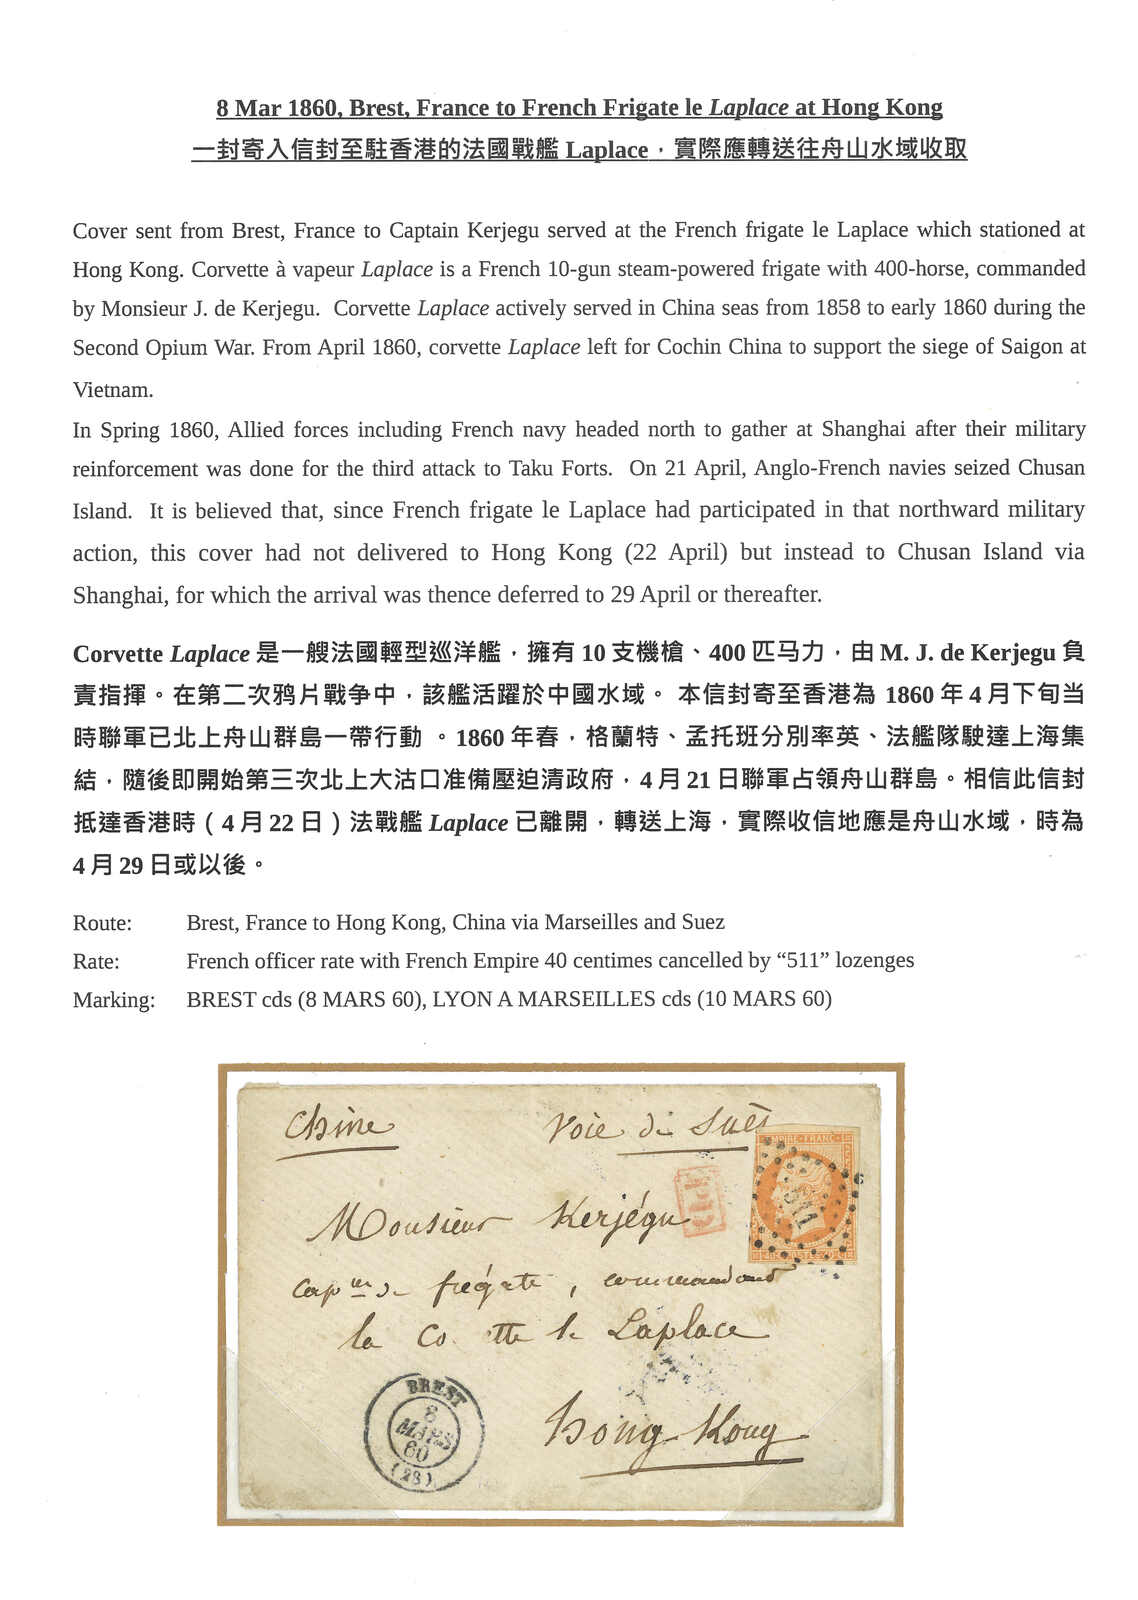 8 Mar 1860, Brest, France to French Frigate le Laplace at Hong Kong
一封寄入信封至駐香港的法國戰艦 Laplace，實際應轉送往舟山水域收取
Cover sent from Brest, France to Captain Kerjegu served at the French frigate le Laplace which stationed at
Hong Kong. Corvette à vapeur Laplace is a French 10-gun steam-powered frigate with 400-horse, commanded
by Monsieur J. de Kerjegu.  Corvette Laplace actively served in China seas from 1858 to early 1860 during the
Second Opium War. From April 1860, corvette Laplace left for Cochin China to support the siege of Saigon at
Vietnam.
In Spring 1860, Allied forces including French navy headed north to gather at Shanghai after their military
reinforcement was done for the third attack to Taku Forts.  On 21 April, Anglo-French navies seized Chusan
Island.  It is believed that, since French frigate le Laplace had participated in that northward military
action, this cover had not delivered to Hong Kong (22 April) but instead to Chusan Island via
Shanghai, for which the arrival was thence deferred to 29 April or thereafter.
Corvette Laplace 是一艘法國輕型巡洋艦，擁有 10 支機槍、400 匹马力，由 M. J. de Kerjegu 負
責指揮。在第二次鸦片戰争中，該艦活躍於中國水域。 本信封寄至香港為 1860 年 4 月下旬当
時聯軍已北上舟山群島一帶行動 。1860 年春，格蘭特、孟托班分別率英、法艦隊駛達上海集
結，隨後即開始第三次北上大沽口准備壓迫清政府，4 月 21 日聯軍占領舟山群島。相信此信封
抵達香港時（4 月 22 日）法戰艦 Laplace 已離開，轉送上海，實際收信地應是舟山水域，時為
4 月 29 日或以後。
Route: Brest, France to Hong Kong, China via Marseilles and Suez
Rate: French officer rate with French Empire 40 centimes cancelled by “511” lozenges
Marking: BREST cds (8 MARS 60), LYON A MARSEILLES cds (10 MARS 60)
Chine
Voie de Suès
EMPIRE FRANC
511
Monsieur Kerjégu
capne de frégate, commandant
la Co tte le Laplace
Hong-Kong
BREST
8
MARS
60
(28)